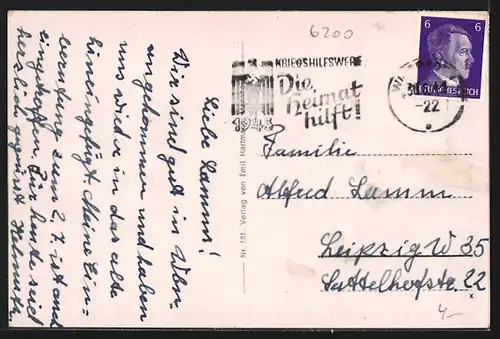 6200
Liebe Lamms!
Wir sind gut in
angekommen und haben
uns wieder in das alte
hineingefügt. Meine Ein-
berufung zum 2.7. ist auch
eingetroffen. Für heute seid
herzlich gegrüsst Helmuth
Nr. 181. Verlag von Emil Hartm
KRIEGSHILFSWERK
Die
Heimat
hilft!
1943
-22
6 6
DEUTSCHES REICH
Familie
Alfred Lamm
Leipzig W 35
Sattelhofstr. 22
x
4,-